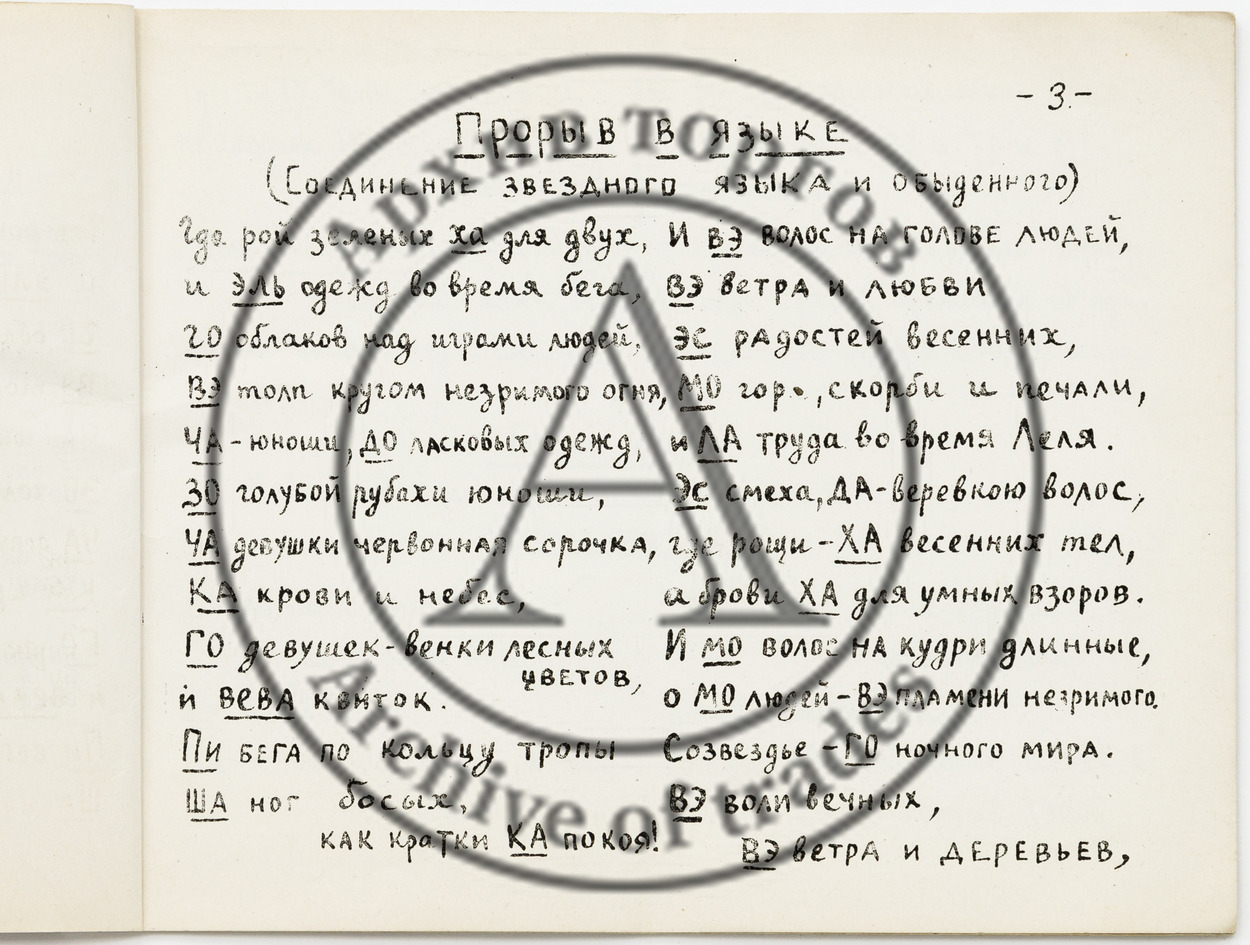 - 3 -
Прорыв в языке
(Соединение звездного языка и обыденного)
Где рой зеленых ха для двух,
и ЭЛЬ одежд во время бега,
ГО облаков над играми людей,
ВЭ толп кругом незримого огня,
ЧА - юноши, ДО ласковых одежд,
ЗО голубой рубахи юноши,
ЧА девушки червонная сорочка,
КА крови и небес,
ГО девушек - венки лесных
цветов,
и ВЕВА квиток.
Пи бега по кольцу тропы
ША ног босых,
как кратки КА покоя!
И ВЭ волос на голове людей,
ВЭ ветра и любви
ЭС радостей весенних,
МО гор., скорби и печали,
и ЛА труда во время Леля.
ЭС смеха, ДА - веревкою волос,
где рощи - ХА весенних тел,
а брови ХА для умных взоров.
И мо волос на кудри длинные,
о МО людей - ВЭ пламени незримого.
Созвездье - ГО ночного мира.
ВЭ воли вечных,
ВЭ ветра и деревьев,
Архив торгов
Archive of trades
А